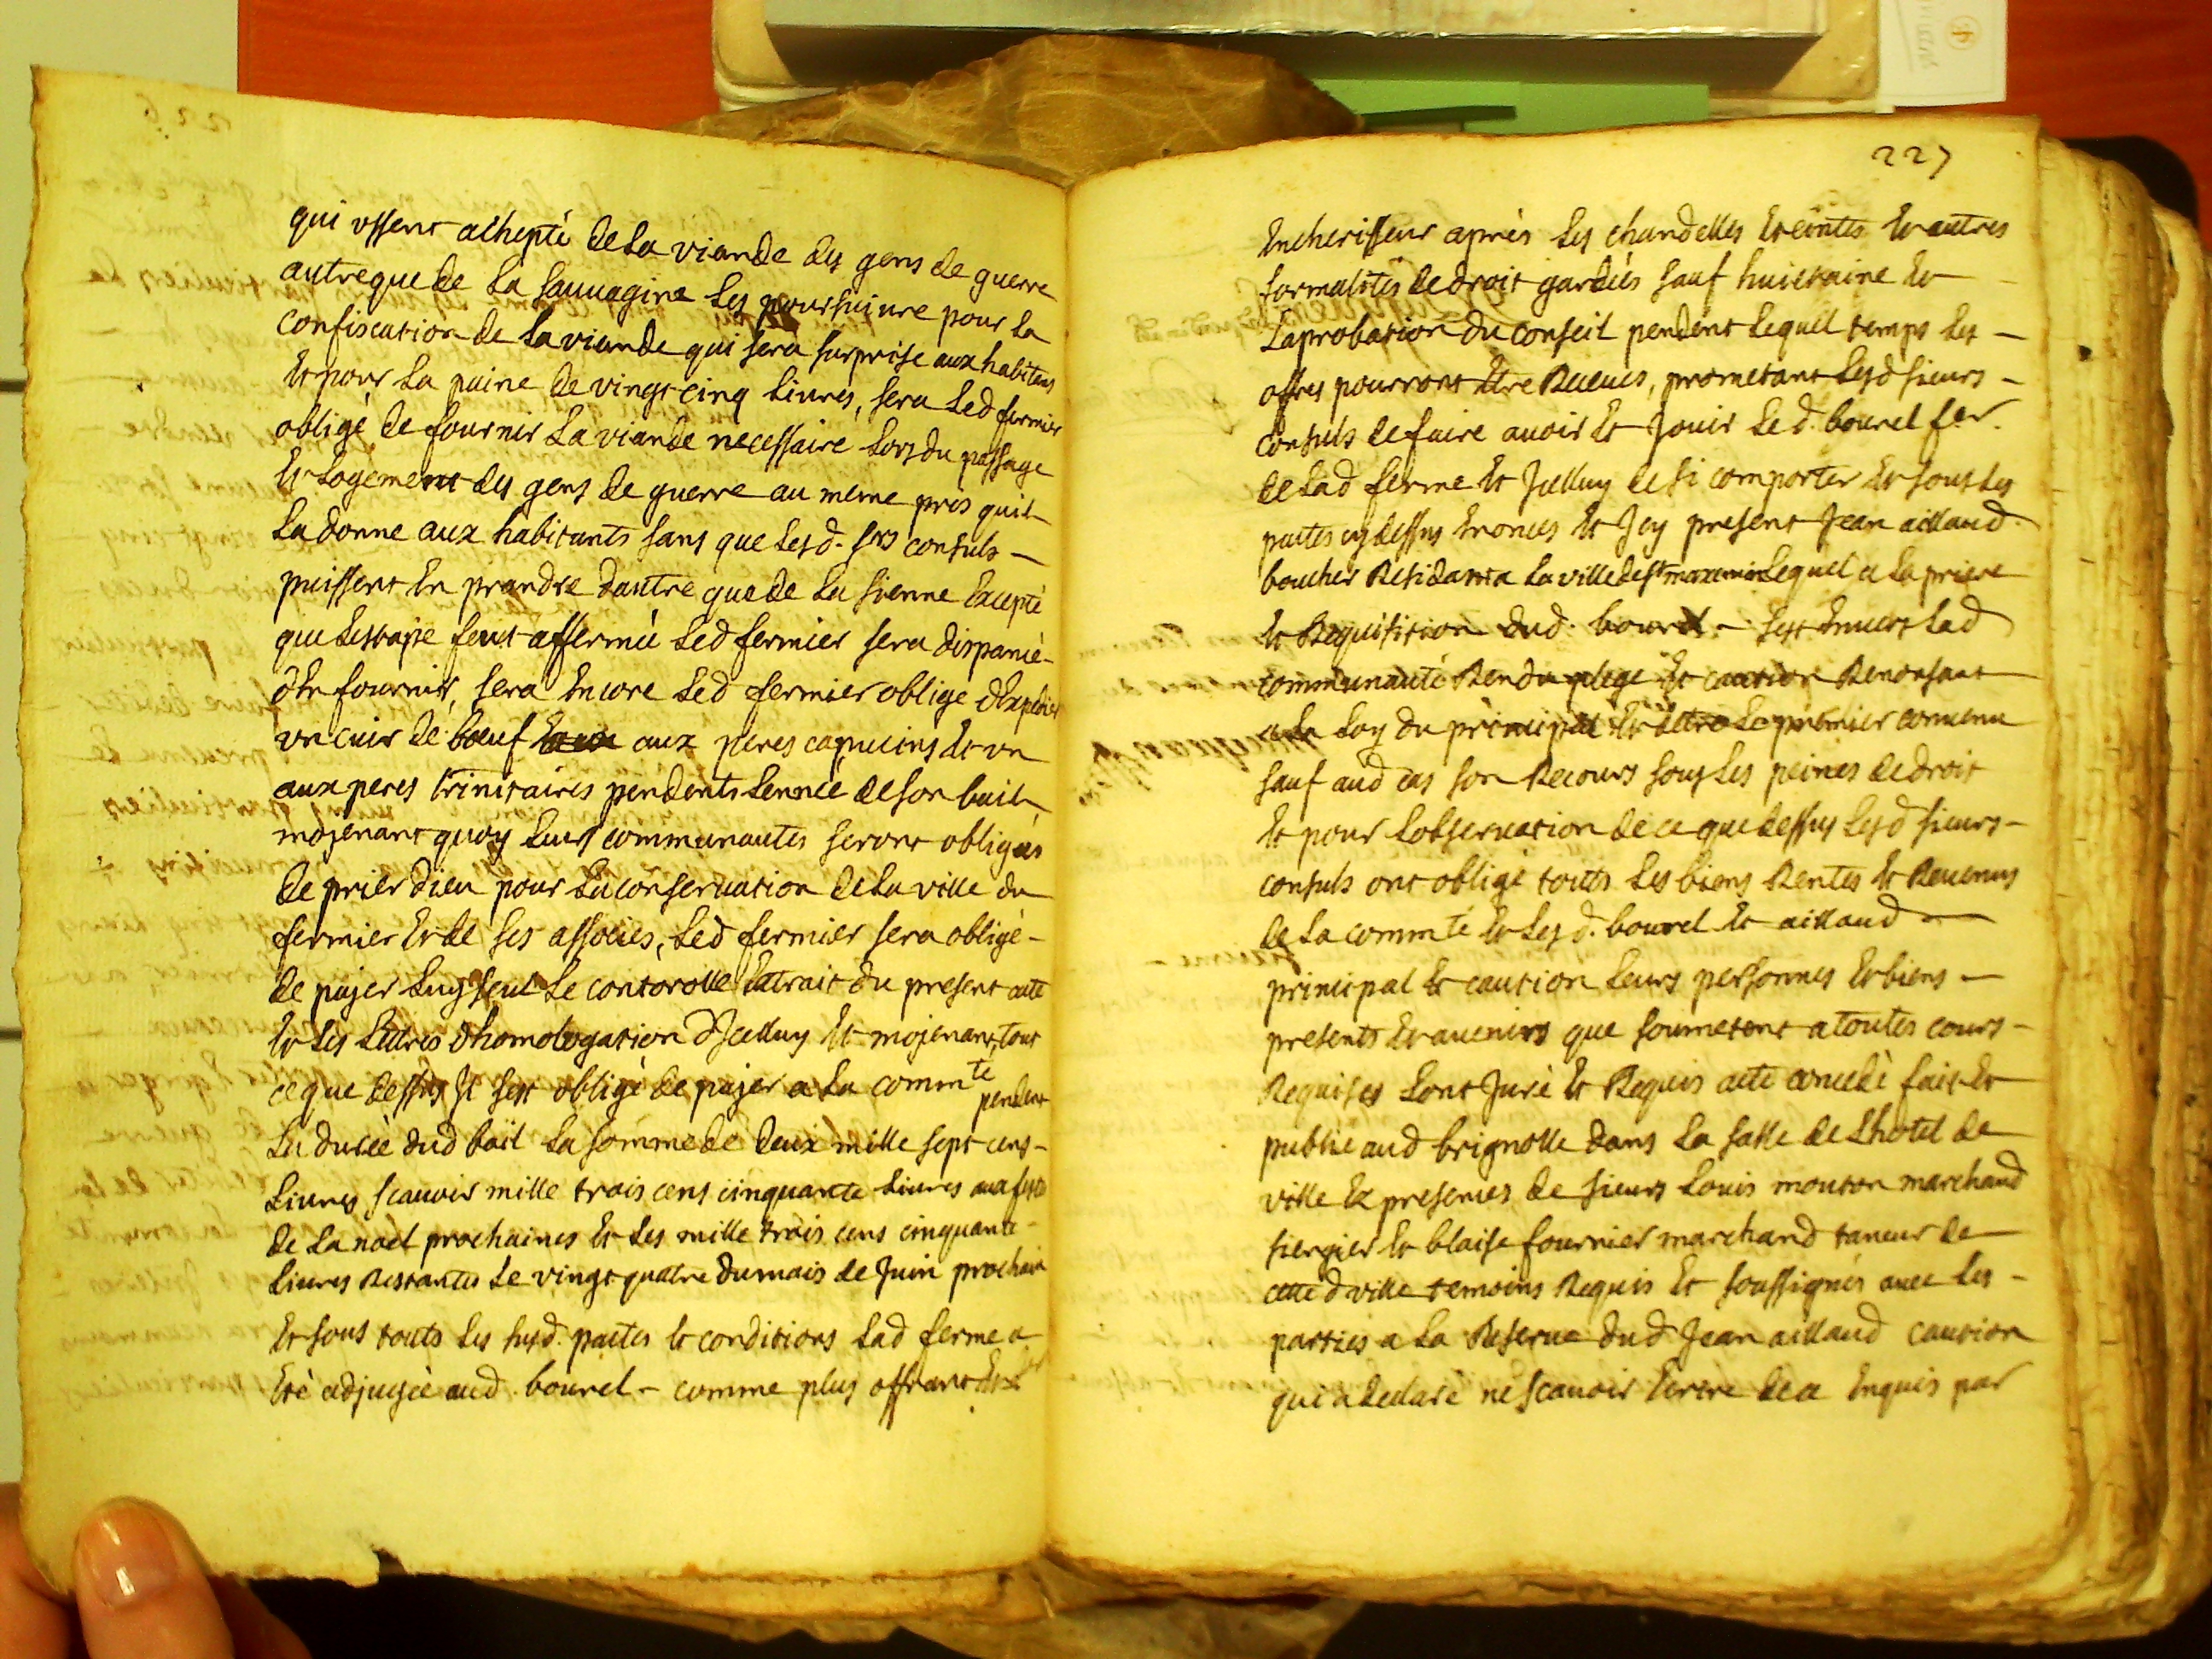 qui ussent achepté de la viande des gens de guerre
autre que de la sauuagine les poursuiure pour la
confiscation de la viande qui sera surprise aux habitans
et pour la paine de vingt cinq liures, sera led fermier
obligé de fournir la viande necessaire lors du passage
et logement des gens de guerre au meme pris quil
la donne aux habitants sans que lesd. srs consuls
puissent en prandre dautre que de la sienne excepté
que lestape feut affermée led fermier sera dispancé
den fournir, sera encore led fermier oblige dexpedier
un cuir de bœuf aux peres capucins et un
aux peres trinitaires pendents lennée de son bail
mojenant quoy leurs communautes seront obligées
de prier dieu pour la conseruation de la ville du
fermier et de ses associes, led fermier sera obligé
de pajer luy seul le contorolle extrait du present acte
et les lettres dhomologation dicelluy et mojenant tout
ce que dessus il sest obligé de pajer a la commte pendent
la durée dud bail la somme de deux mille sept cens
liures scauoir mille trois cens cinquante liures aux festes
de la noel prochaines et les mille trois cens cinquante
liures restantes le vingt quatre du mais de juin prochain
et sous touts les susd. pactes et conditions lad ferme a
eté adjugée aud. bourel comme plus offrant et der
227
encherisseur après les chandelles eteintes et autres
formalités de droit gardées sauf huictaine et
laprobation du conseil pendent lequell temps les
offres pourront etre receues, prometant lesd sieurs
consuls de faire auoir et jouir led. bourel fer.
de lad ferme et jcelluy de si comporter et sous les
pactes cy dessus enoncés et jcy present jean aillaud
boucher residant a la ville de st maxemin lequel a la priere
et requisition dud. bourel sest enuers lad
communauté rendu plege et caution renonsant
a la loy du principal et estre le premier conuenu
sauf aud cas son recours sous les peines de droit
et pour lobseruation de ce que dessus lesd sieurs
consuls ont obligé touts les biens rentes et reuenus
de la commte et lesd. bourel et aillaud
principal et caution leurs personnes et biens
presents et auenirs que soumetent a toutes cours
requises lont juré et requis acte concedé fait et
publié aud brignolle dans la salle de lhotel de
ville ez presences de sieurs louis mouton marchand
siergier et blaise fournier marchand taneur de
cette d ville temoins requis et soussignés auec les
parties a la reserue dud jean aillaud caution
qui a declaré ne scauoir ecrire de ce enquis par